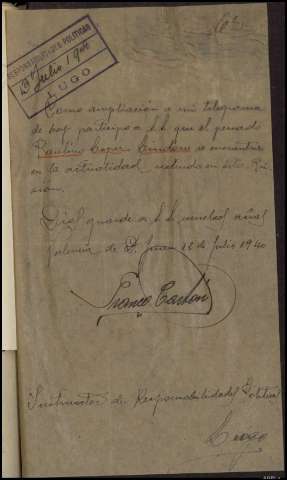 RESPONSABILIDADES POLITICAS
Julio 1940
LUGO
Como ampliación a mi telegrama
de hoy participo a S.S. que el penado
Paulino Lopez se encuentra
en la actualidad recluido en esta Pri-
sion.
Dios guarde a S.S. muchos años
Valencia de D. Juan 18 de Julio 1940
Instructor de Responsabilidades Politicas
Lugo